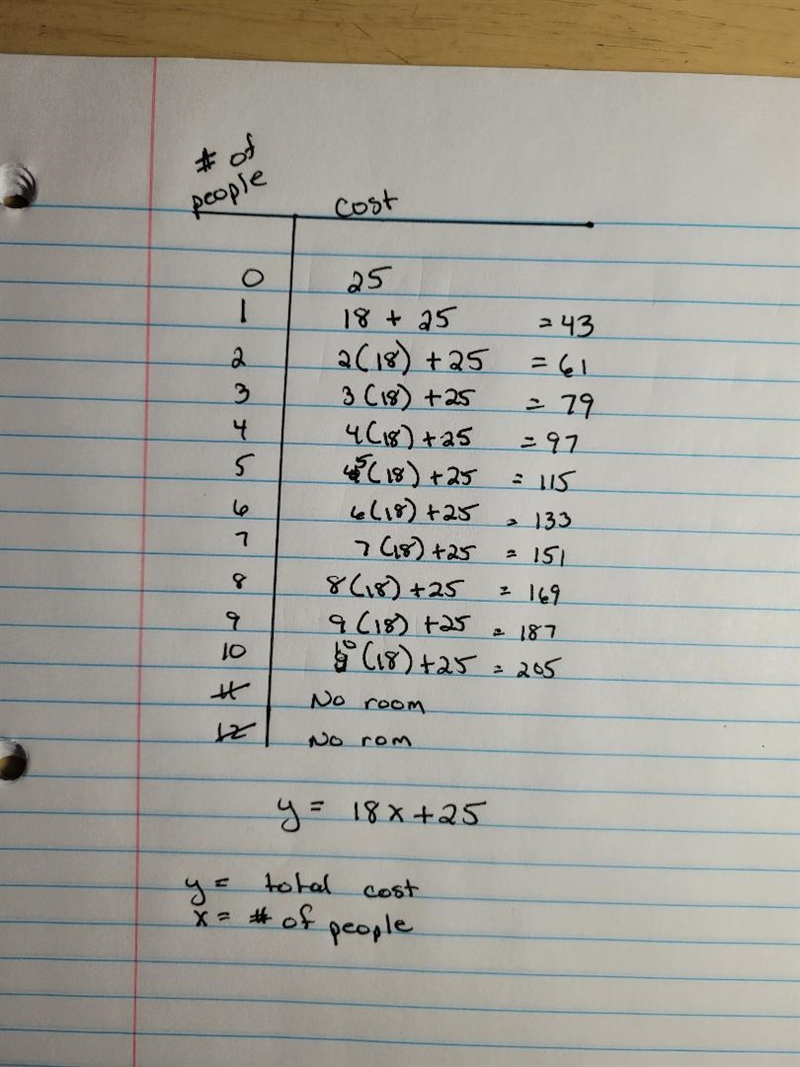 # of
people cost
0 25
1 18 + 25 = 43
2 2(18) + 25 = 61
3 3(18) + 25 = 79
4 4(18) + 25 = 97
5 5(18) + 25 = 115
6 6(18) + 25 = 133
7 7(18) + 25 = 151
8 8(18) + 25 = 169
9 9(18) + 25 = 187
10 10(18) + 25 = 205
11 No room
12 No rom
y = 18x + 25
y = total cost
x = # of people